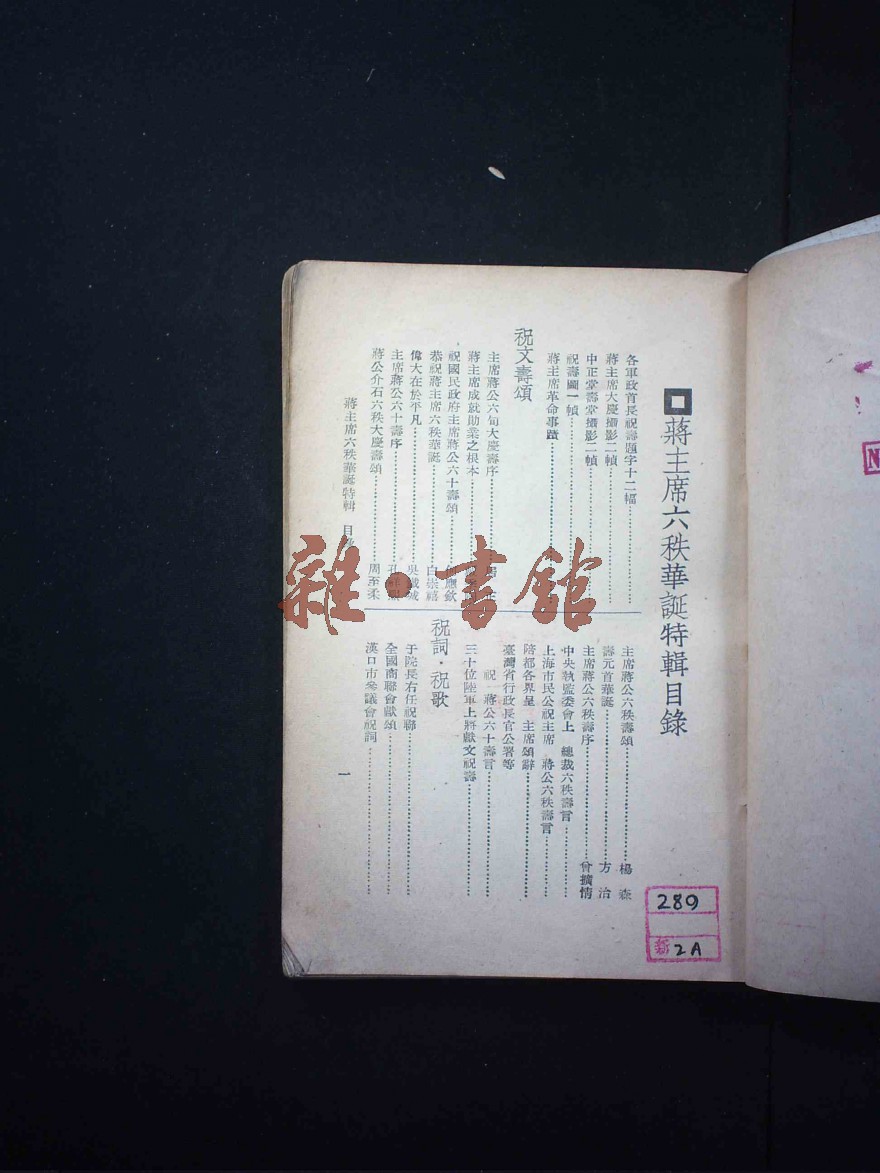 蔣主席六秩華誕特輯目錄
各軍政首長祝壽題字十二幅
蔣主席大慶攝影二幀
中正堂壽堂攝影二幀
祝壽圖一幀
蔣主席革命事蹟
祝文壽頌
主席蔣公六旬大慶壽序
蔣主席成就勛業之根本
祝國民政府主席蔣公六十壽頌 應欽
恭祝蔣主席六秩華誕 白崇禧
偉大在於平凡 吳鐵城
主席蔣公六十壽序 孔祥
蔣公介石六秩大慶壽頌 周至柔
主席蔣公六秩壽頌 楊森
壽元首華誕 方治
主席蔣公六秩壽序 曾擴情
中央執監委會上 總裁六秩壽言
上海市民公祝主席 蔣公六秩壽言
陪都各界呈 主席頌辭
臺灣省行政長官公署等
祝 蔣公六十壽言
三十位陸軍上將獻文祝壽
祝詞·祝歌
于院長右任祝聯
全國商聯會獻頌
漢口市參議會祝詞
蔣主席六秩華誕特輯 目
一
289
2A
N
雜·書館